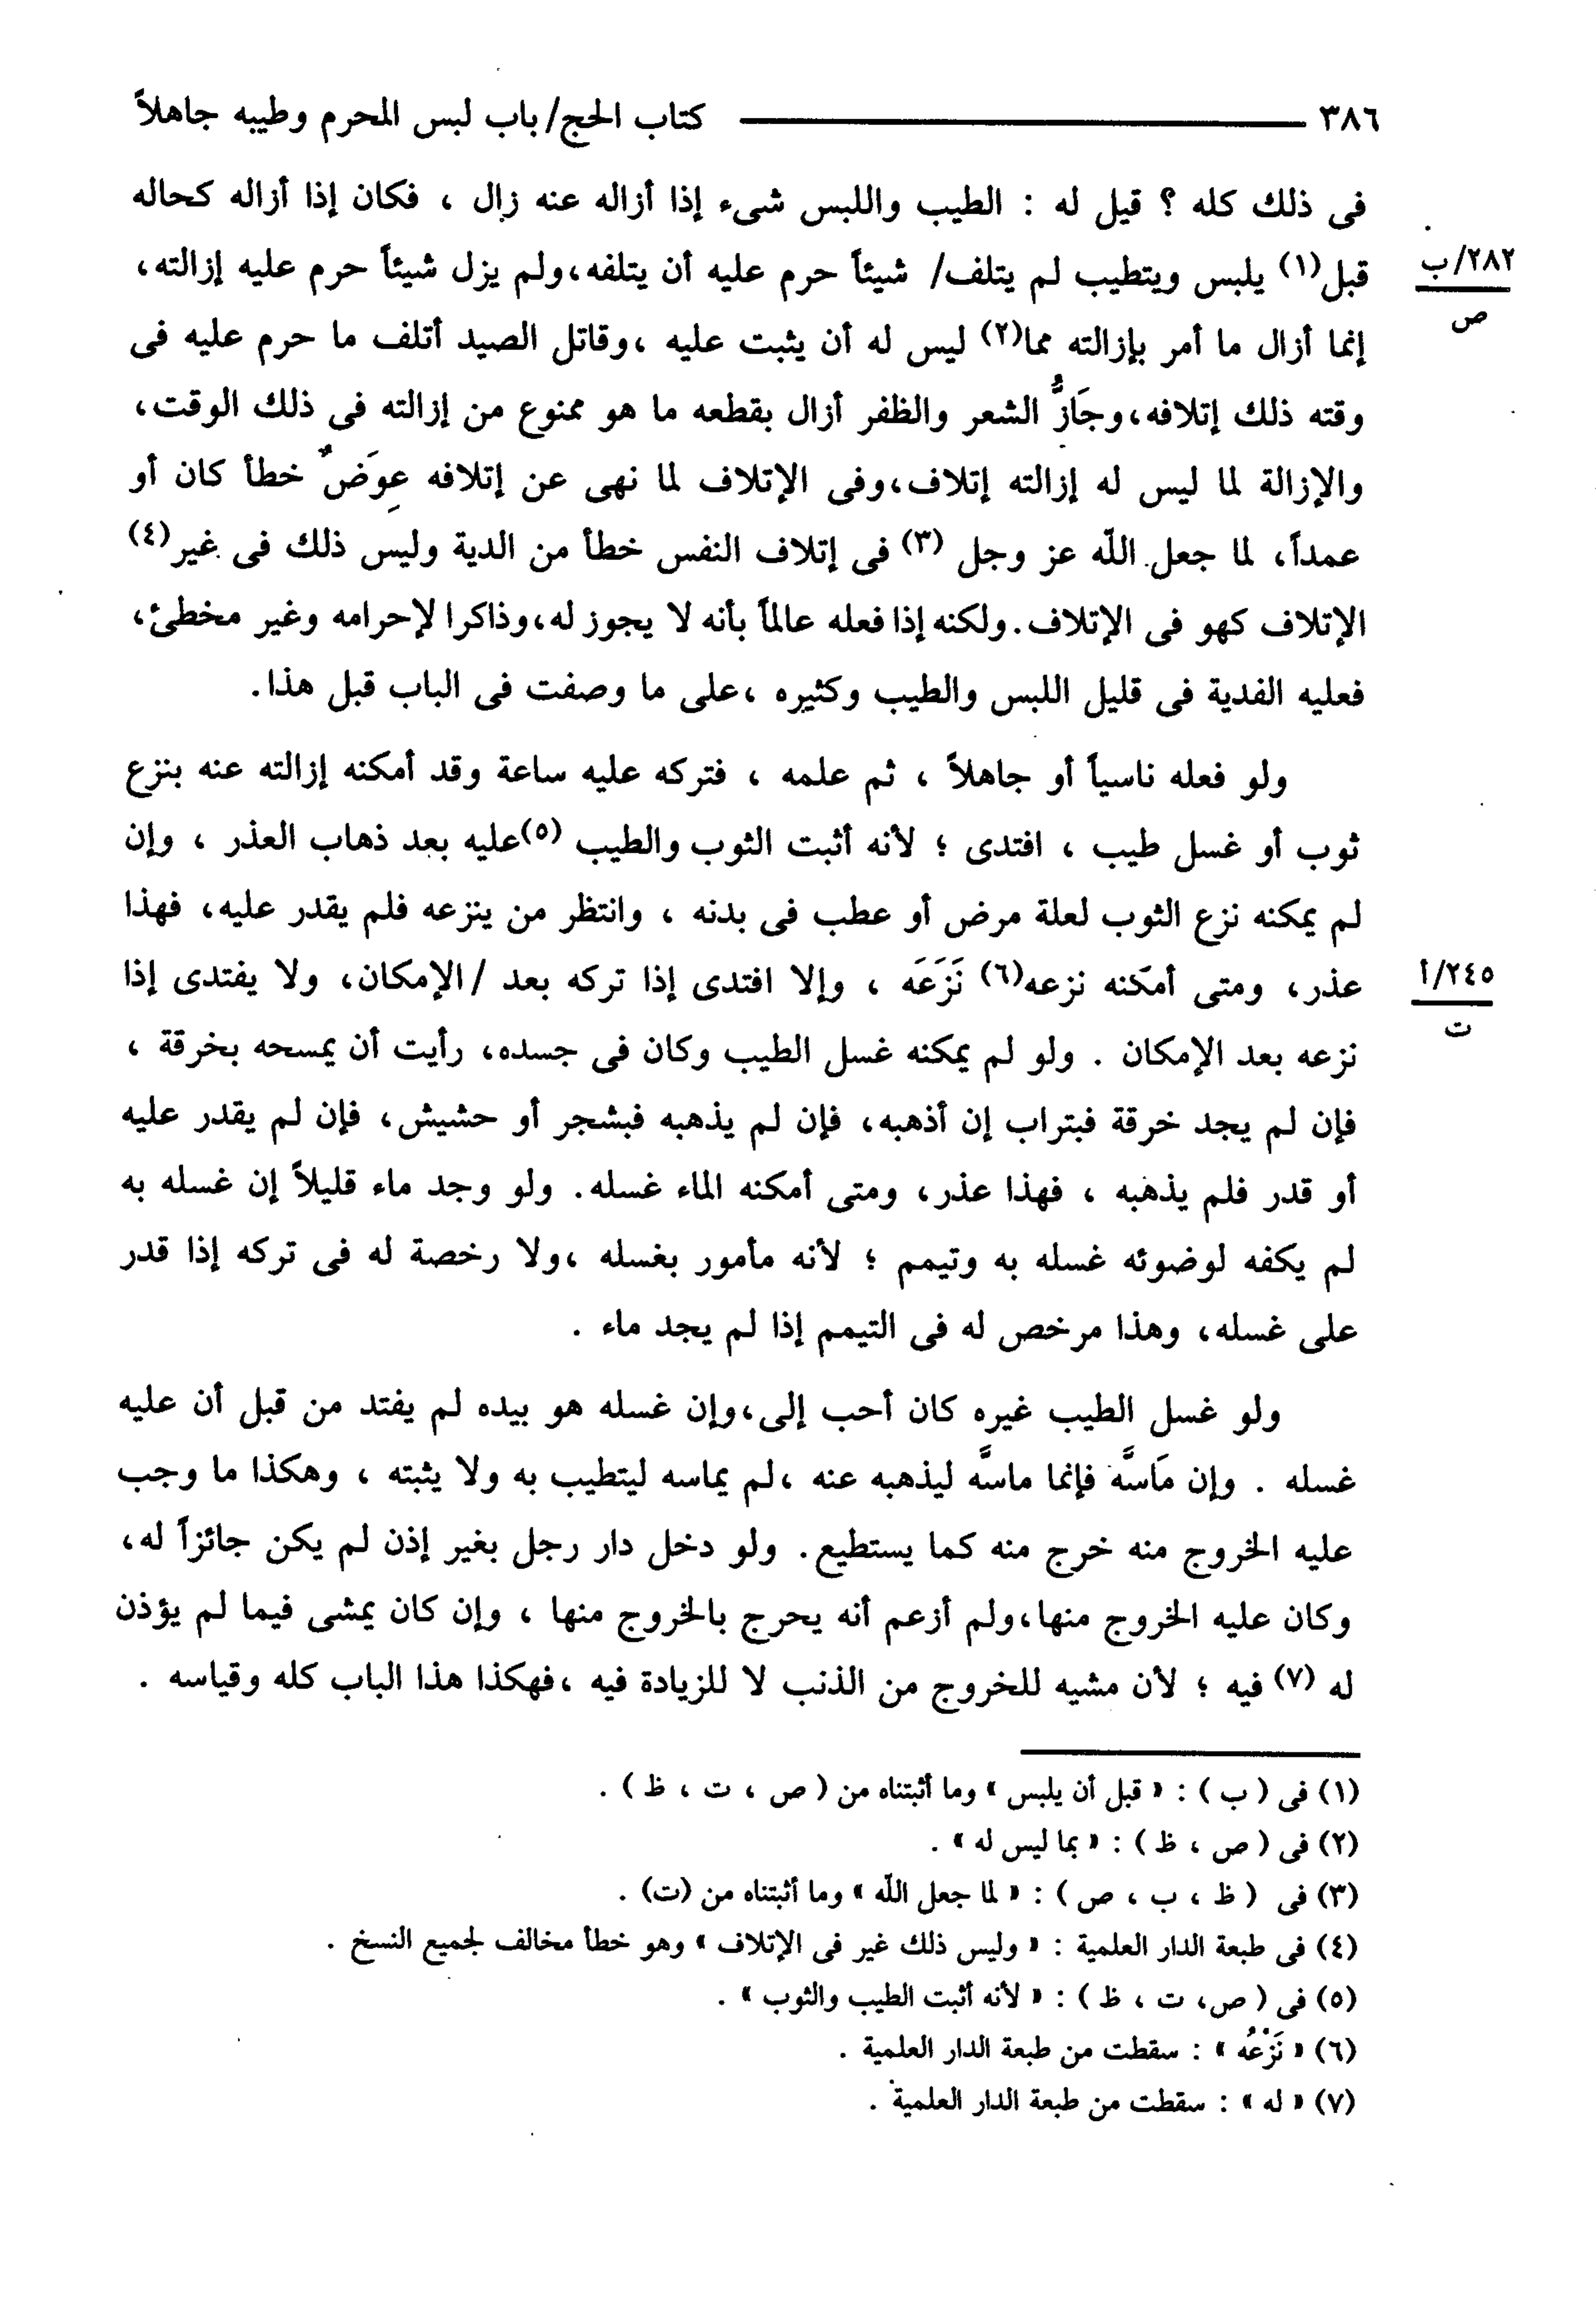 ٣٨٦ كتاب الحج/ باب لبس المحرم وطيبه جاهلاً
فى ذلك كله ؟ قيل له : الطيب واللبس شىء إذا أزاله عنه زال ، فكان إذا أزاله كحاله
قبل(١) يلبس ويتطيب لم يتلف/ شيئاً حرم عليه أن يتلفه، ولم يزل شيئاً حرم عليه إزالته،
٢٨٢/ب
ص
إنما أزال ما أمر بإزالته مما(٢) ليس له أن يثبت عليه ، وقاتل الصيد أتلف ما حرم عليه فى
وقته ذلك إتلافه، وجَازُّ الشعر والظفر أزال بقطعه ما هو ممنوع من إزالته فى ذلك الوقت،
والإزالة لما ليس له إزالته إتلاف، وفى الإتلاف لما نهى عن إتلافه عِوَضٌ خطأ كان أو
عمداً، لما جعل الله عز وجل (٣) فى إتلاف النفس خطأ من الدية وليس ذلك فى غير(٤)
الإتلاف كهو فى الإتلاف. ولكنه إذا فعله عالماً بأنه لا يجوز له، وذاكرا لإحرامه وغير مخطئ،
فعليه الفدية فى قليل اللبس والطيب وكثيره ، على ما وصفت فى الباب قبل هذا.
ولو فعله ناسياً أو جاهلاً ، ثم علمه ، فتركه عليه ساعة وقد أمكنه إزالته عنه بنزع
ثوب أو غسل طيب ، افتدى ؛ لأنه أثبت الثوب والطيب (٥)عليه بعد ذهاب العذر ، وإن
لم يمكنه نزع الثوب لعلة مرض أو عطب فى بدنه ، وانتظر من ينزعه فلم يقدر عليه، فهذا
عذر، ومتى أمكنه نزعه(٦) نَزَعَه ، وإلا افتدى إذا تركه بعد /الإمكان، ولا يفتدى إذا
٢٤٥/أ
ت
نزعه بعد الإمكان . ولو لم يمكنه غسل الطيب وكان فى جسده، رأيت أن يمسحه بخرقة ،
فإن لم يجد خرقة فبتراب إن أذهبه، فإن لم يذهبه فبشجر أو حشيش، فإن لم يقدر عليه
أو قدر فلم يذهبه ، فهذا عذر، ومتى أمكنه الماء غسله. ولو وجد ماء قليلاً إن غسله به
لم يكفه لوضوئه غسله به وتيمم ؛ لأنه مأمور بغسله ، ولا رخصة له فى تركه إذا قدر
على غسله، وهذا مرخص له فى التيمم إذا لم يجد ماء .
ولو غسل الطيب غيره كان أحب إلى، وإن غسله هو بيده لم يفتد من قبل أن عليه
غسله . وإن مَاسَّه فإنما ماسَّه ليذهبه عنه ، لم يماسه ليتطيب به ولا يثبته ، وهكذا ما وجب
عليه الخروج منه خرج منه كما يستطيع. ولو دخل دار رجل بغير إذن لم يكن جائزاً له،
وكان عليه الخروج منها، ولم أزعم أنه يحرج بالخروج منها ، وإن كان يمشى فيما لم يؤذن
له (٧) فيه ؛ لأن مشيه للخروج من الذنب لا للزيادة فيه ، فهكذا هذا الباب كله وقياسه .
(١) فى ( ب ) : « قبل أن يلبس » وما أثبتناه من ( ص ، ت ، ظ ) .
(٢) فى ( ص ، ظ ) : « بما ليس له » .
(٣) فى ( ظ ، ب ، ص ) : « لما جعل الله » وما أثبتناه من (ت) .
(٤) فى طبعة الدار العلمية : « وليس ذلك غير فى الإتلاف » وهو خطأ مخالف لجميع النسخ .
(٥) فى ( ص، ت ، ظ ) : « لأنه أثبت الطيب والثوب » .
(٦) « نَزْعُه » : سقطت من طبعة الدار العلمية .
(٧) « له » : سقطت من طبعة الدار العلمية .